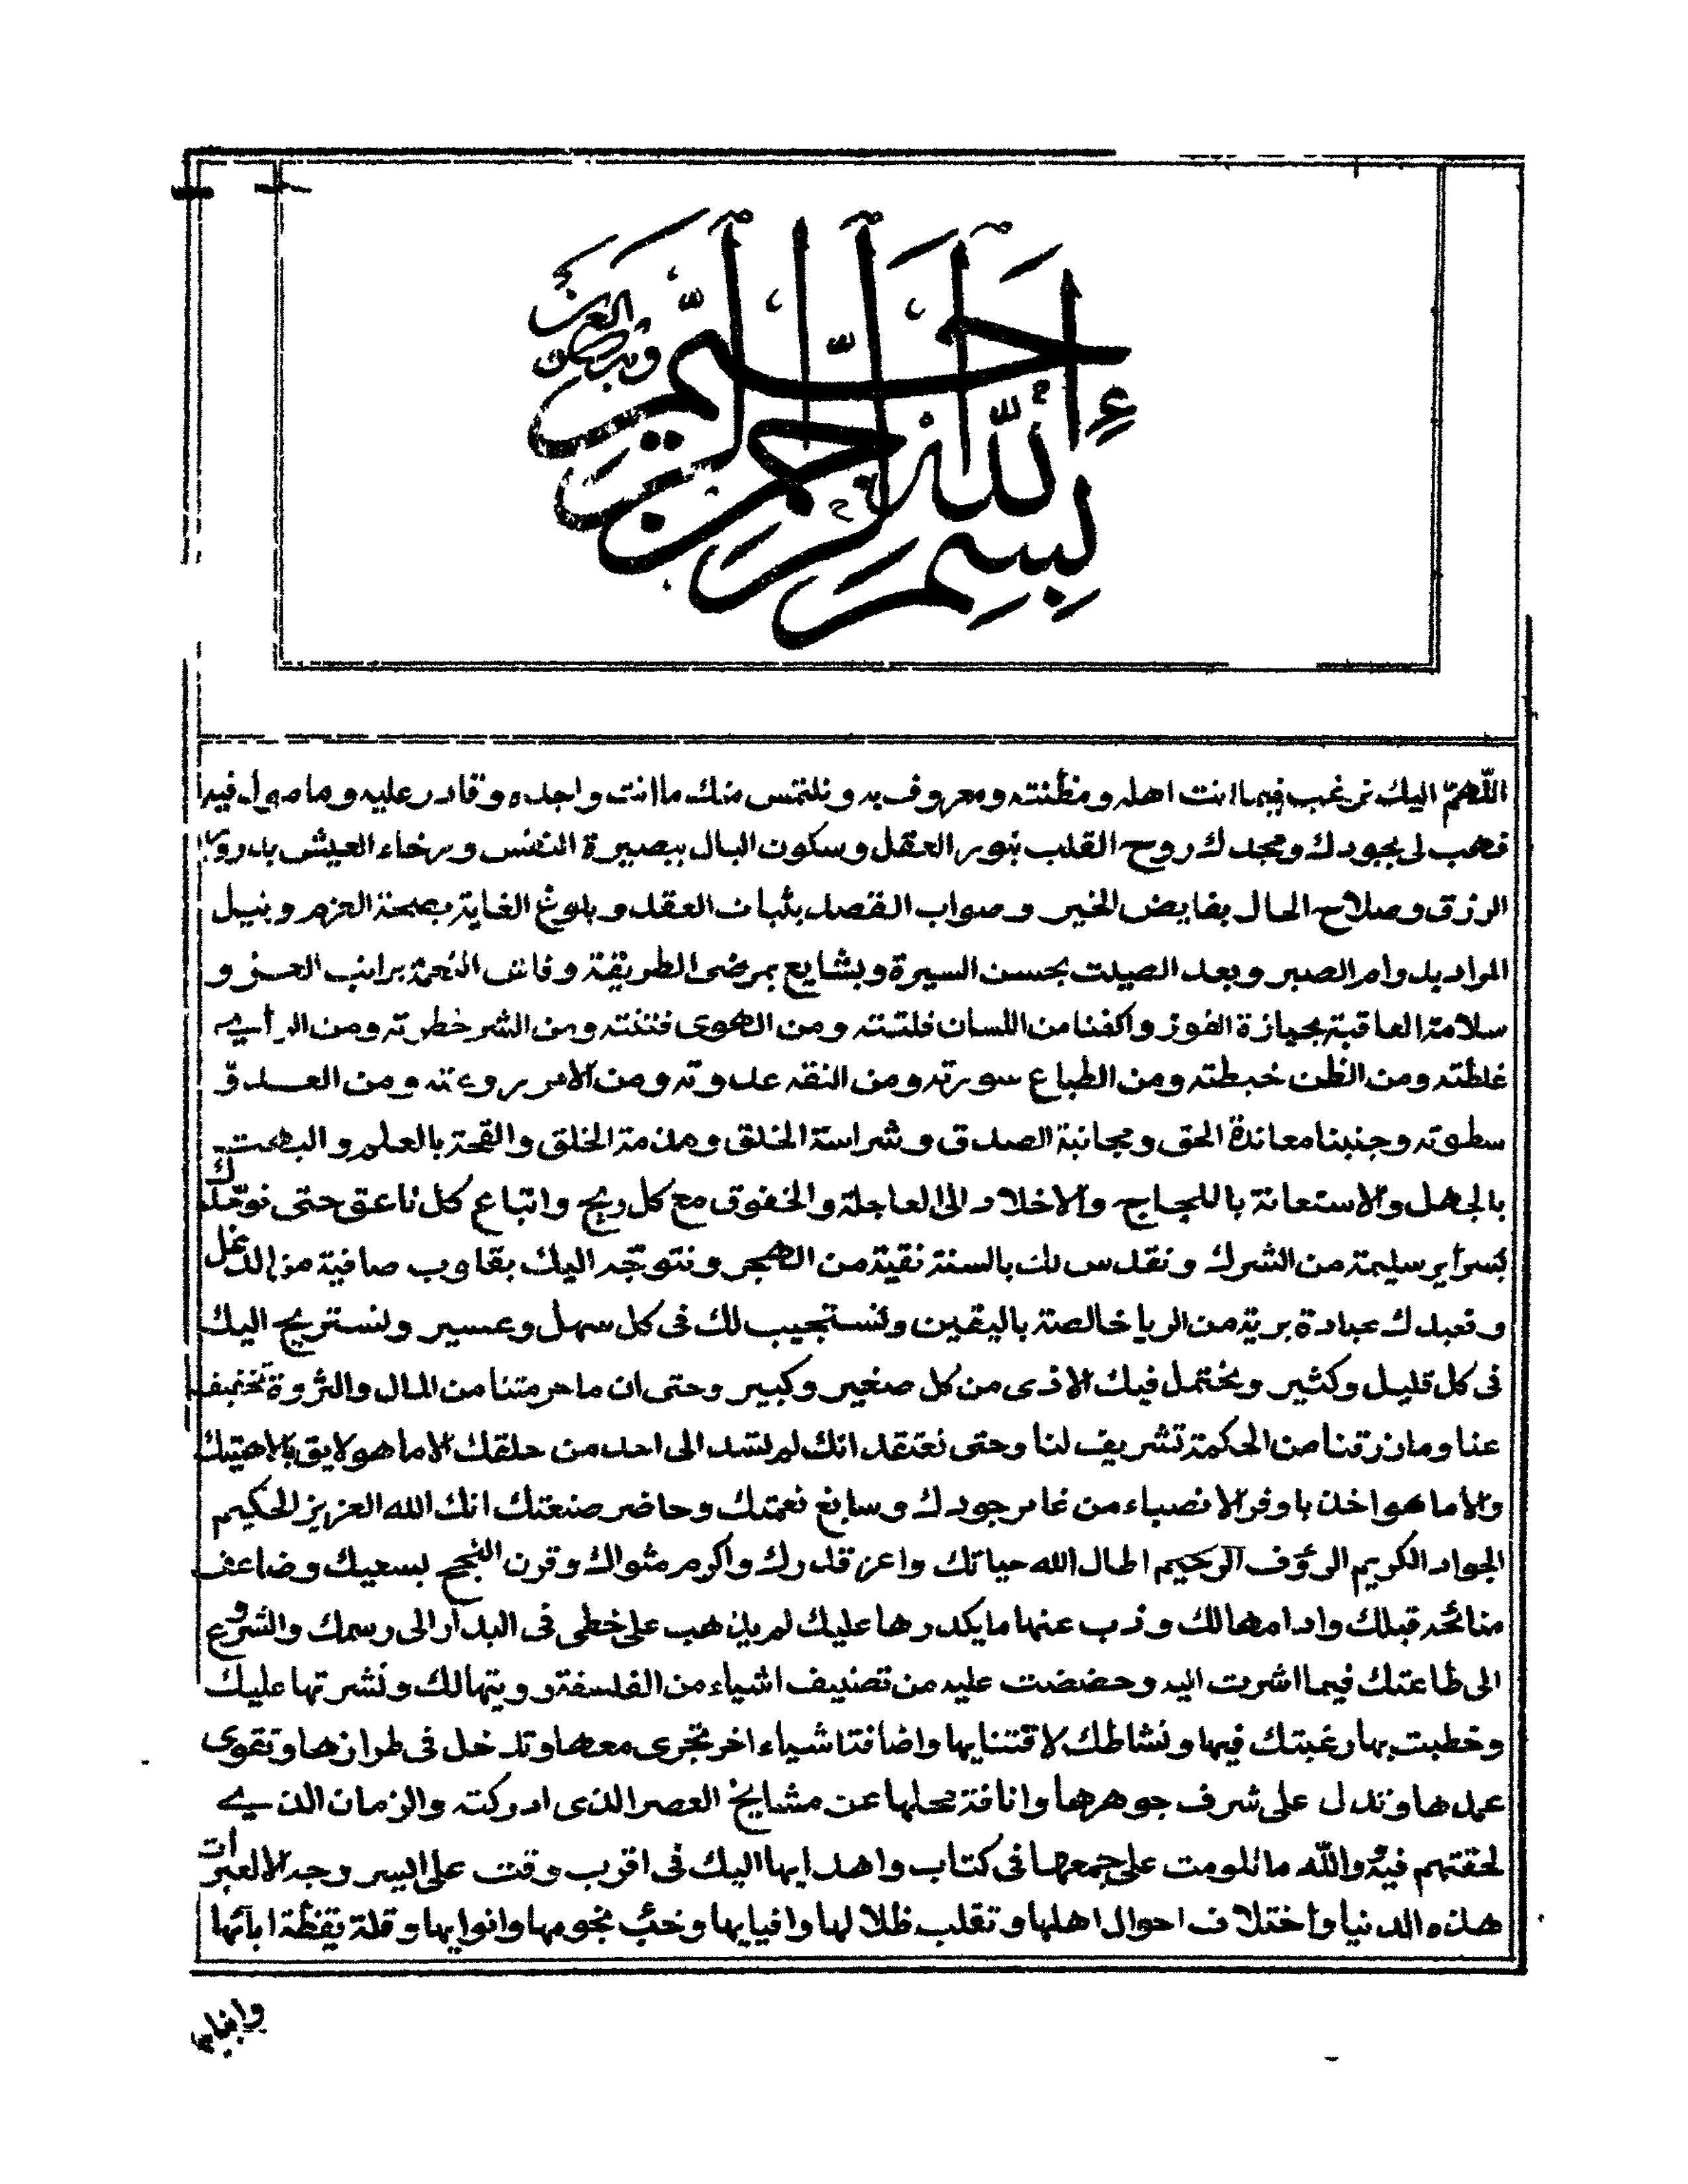 بسم الله الرحمن الرحيم
اللهم اليك نرغب فيما انت اهله ومظنته ومعروف به ونلتمس منك ما انت واجده وقادر عليه وما مول فيه
فهب لى بجودك ومجدك روح القلب بنور العقل وسكون البال ببصيرة النفس ورخاء العيش بدرور
الرزق وصلاح الحال بفايض الخير وصواب القصد بثبات العقد وبلوغ الغاية بصحة العزم ونيل
المراد بدوام الصبر وبعد الصيت بحسن السيرة وبشايع بمرضى الطريقة وفاش النعمة براتب العز و
سلامة العاقبة بحيازة الفوز واكفنا من اللسان فلتته ومن الهوى فتنته ومن الشر خطرته ومن الرأي
غلطته ومن الظن خبطته ومن الطباع سورته ومن النقه عدوته ومن الامر روعته ومن العدو
سطوته وجنبنا معاندة الحق ومجانبة الصدق وشراسة الخلق ومذمة الخلق والقحة بالعلم والبهت
بالجهل والاستعانة باللجاج والاخلاد الى العاجلة والخفوق مع كل ريح واتباع كل ناعق حتى نوحدك
بسرأير سليمة من الشرك ونقدس لك بالسنة نقية من الهجر ونتوجه اليك بقلوب صافية من الدغل
ونعبدك عبادة برية من الريا خالصة باليقين ونستجيب لك فى كل سهل وعسير ونستريح اليك
فى كل قليل وكثير ونحتمل فيك الاذى من كل صغير وكبير وحتى ان ما حرمتنا من المال والثروة تخفيف
عنا وما رزقتنا من الحكمة تشريف لنا وحتى نعتقد انك لم تسد الى احد من خلقك الا ما هو لايق بالاهيتك
والا ما هو اخذ باوفر الانصباء من غامر جودك وسابغ نعمتك وحاضر صنعتك انك الله العزيز الحكيم
الجواد الكريم الرؤف الرحيم اطال الله حياتك واعز قدرك واكرم مثواك وقرن النجح بسعيك وضاعف
منائحه قبلك وادامها لك وذب عنها ما يكدرها عليك لم يذهب على خطى فى البدار الى رسمك والشروع
الى طاعتك فيما اشرت اليه وحضضت عليه من تصنيف اشياء من الفلسفة رويتها لك ونشرتها عليك
وخطبت بها رغبتك فيها ونشاطك لاقتنايها واضافة اشياء اخر تجرى معها وتدخل فى طرازها وتقوى
عمدها وتدل على شرف جوهرها وانافة محلها عن مشايخ العصر الذى ادركته والزمان الذي
لحقتهم فيه ووالله ما تلومت على جمعها فى كتاب واهدايها اليك فى اقرب وقت على ايسر وجه الا لعبرات
هذه الدنيا واختلاف احوال اهلها وتقلب ظلالها وافيايها وخبث نجومها وانوايها وقلة يقظة ابآئها